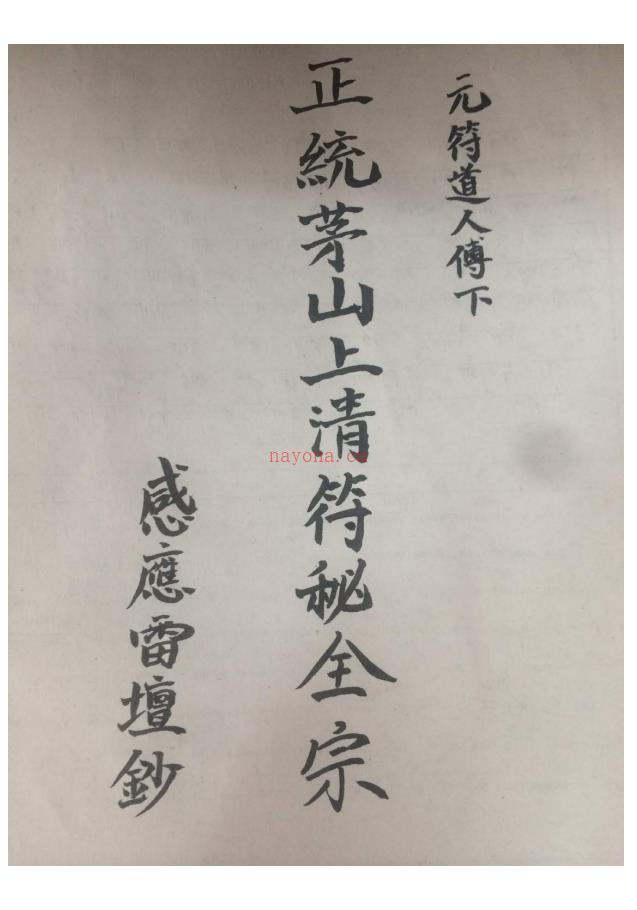 元符道人傅下
正統茅山上清符秘全宗
感應雷壇鈔
nayona.cn